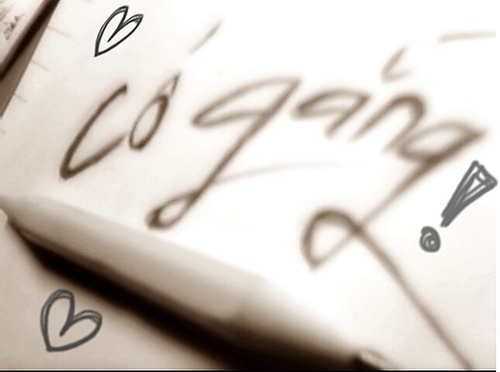 Cố gắng!